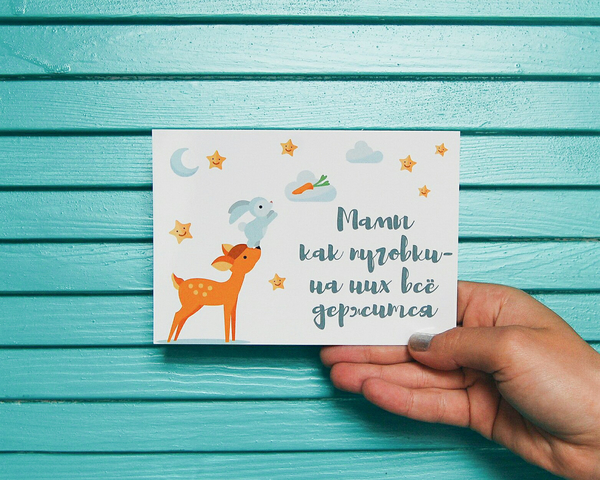 Мамы
как пуговки-
на них всё
держится